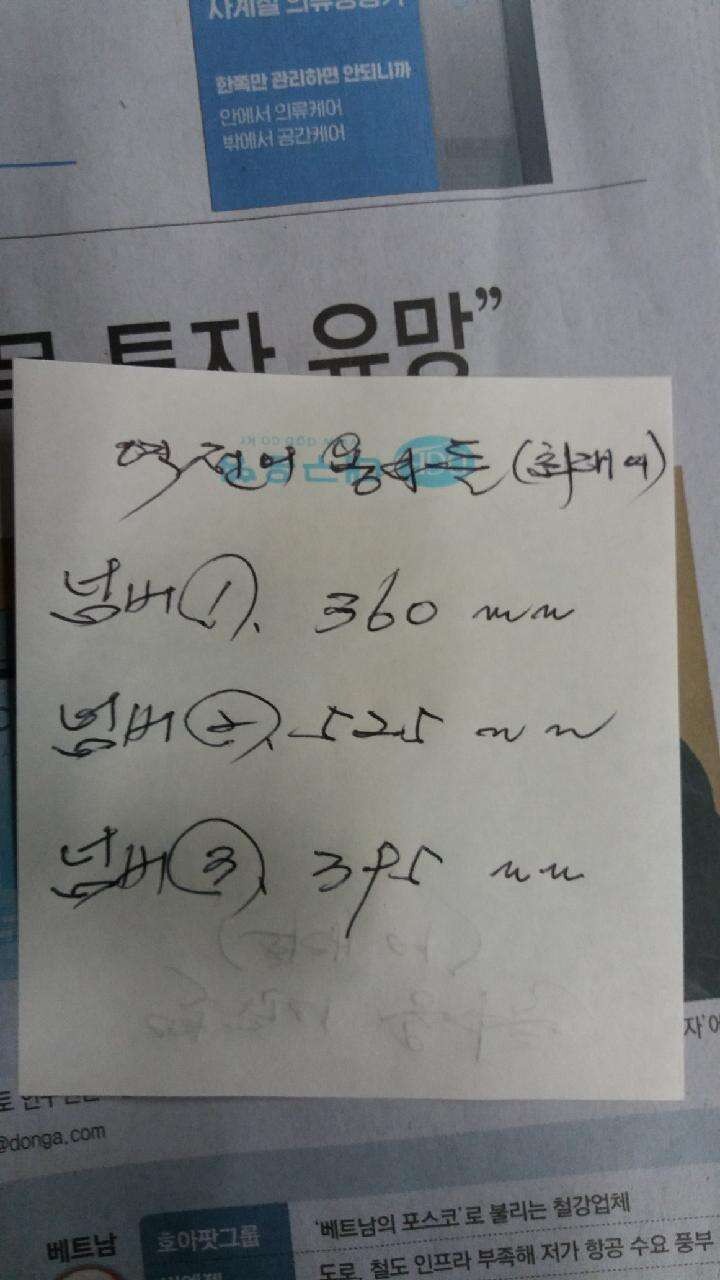 사계절 의류
한쪽만 관리하면 안되니까
안에서 의류케어
밖에서 공간케어
투자 유망”
역전의 용사들 (최래이)
넘버 ①. 360 mm
넘버 ②. 525 mm
넘버 ③. 395 mm
자’에
@donga.com
베트남 호아팟그룹 ‘베트남의 포스코’로 불리는 철강업체
도로, 철도 인프라 부족해 저가 항공 수요 풍부